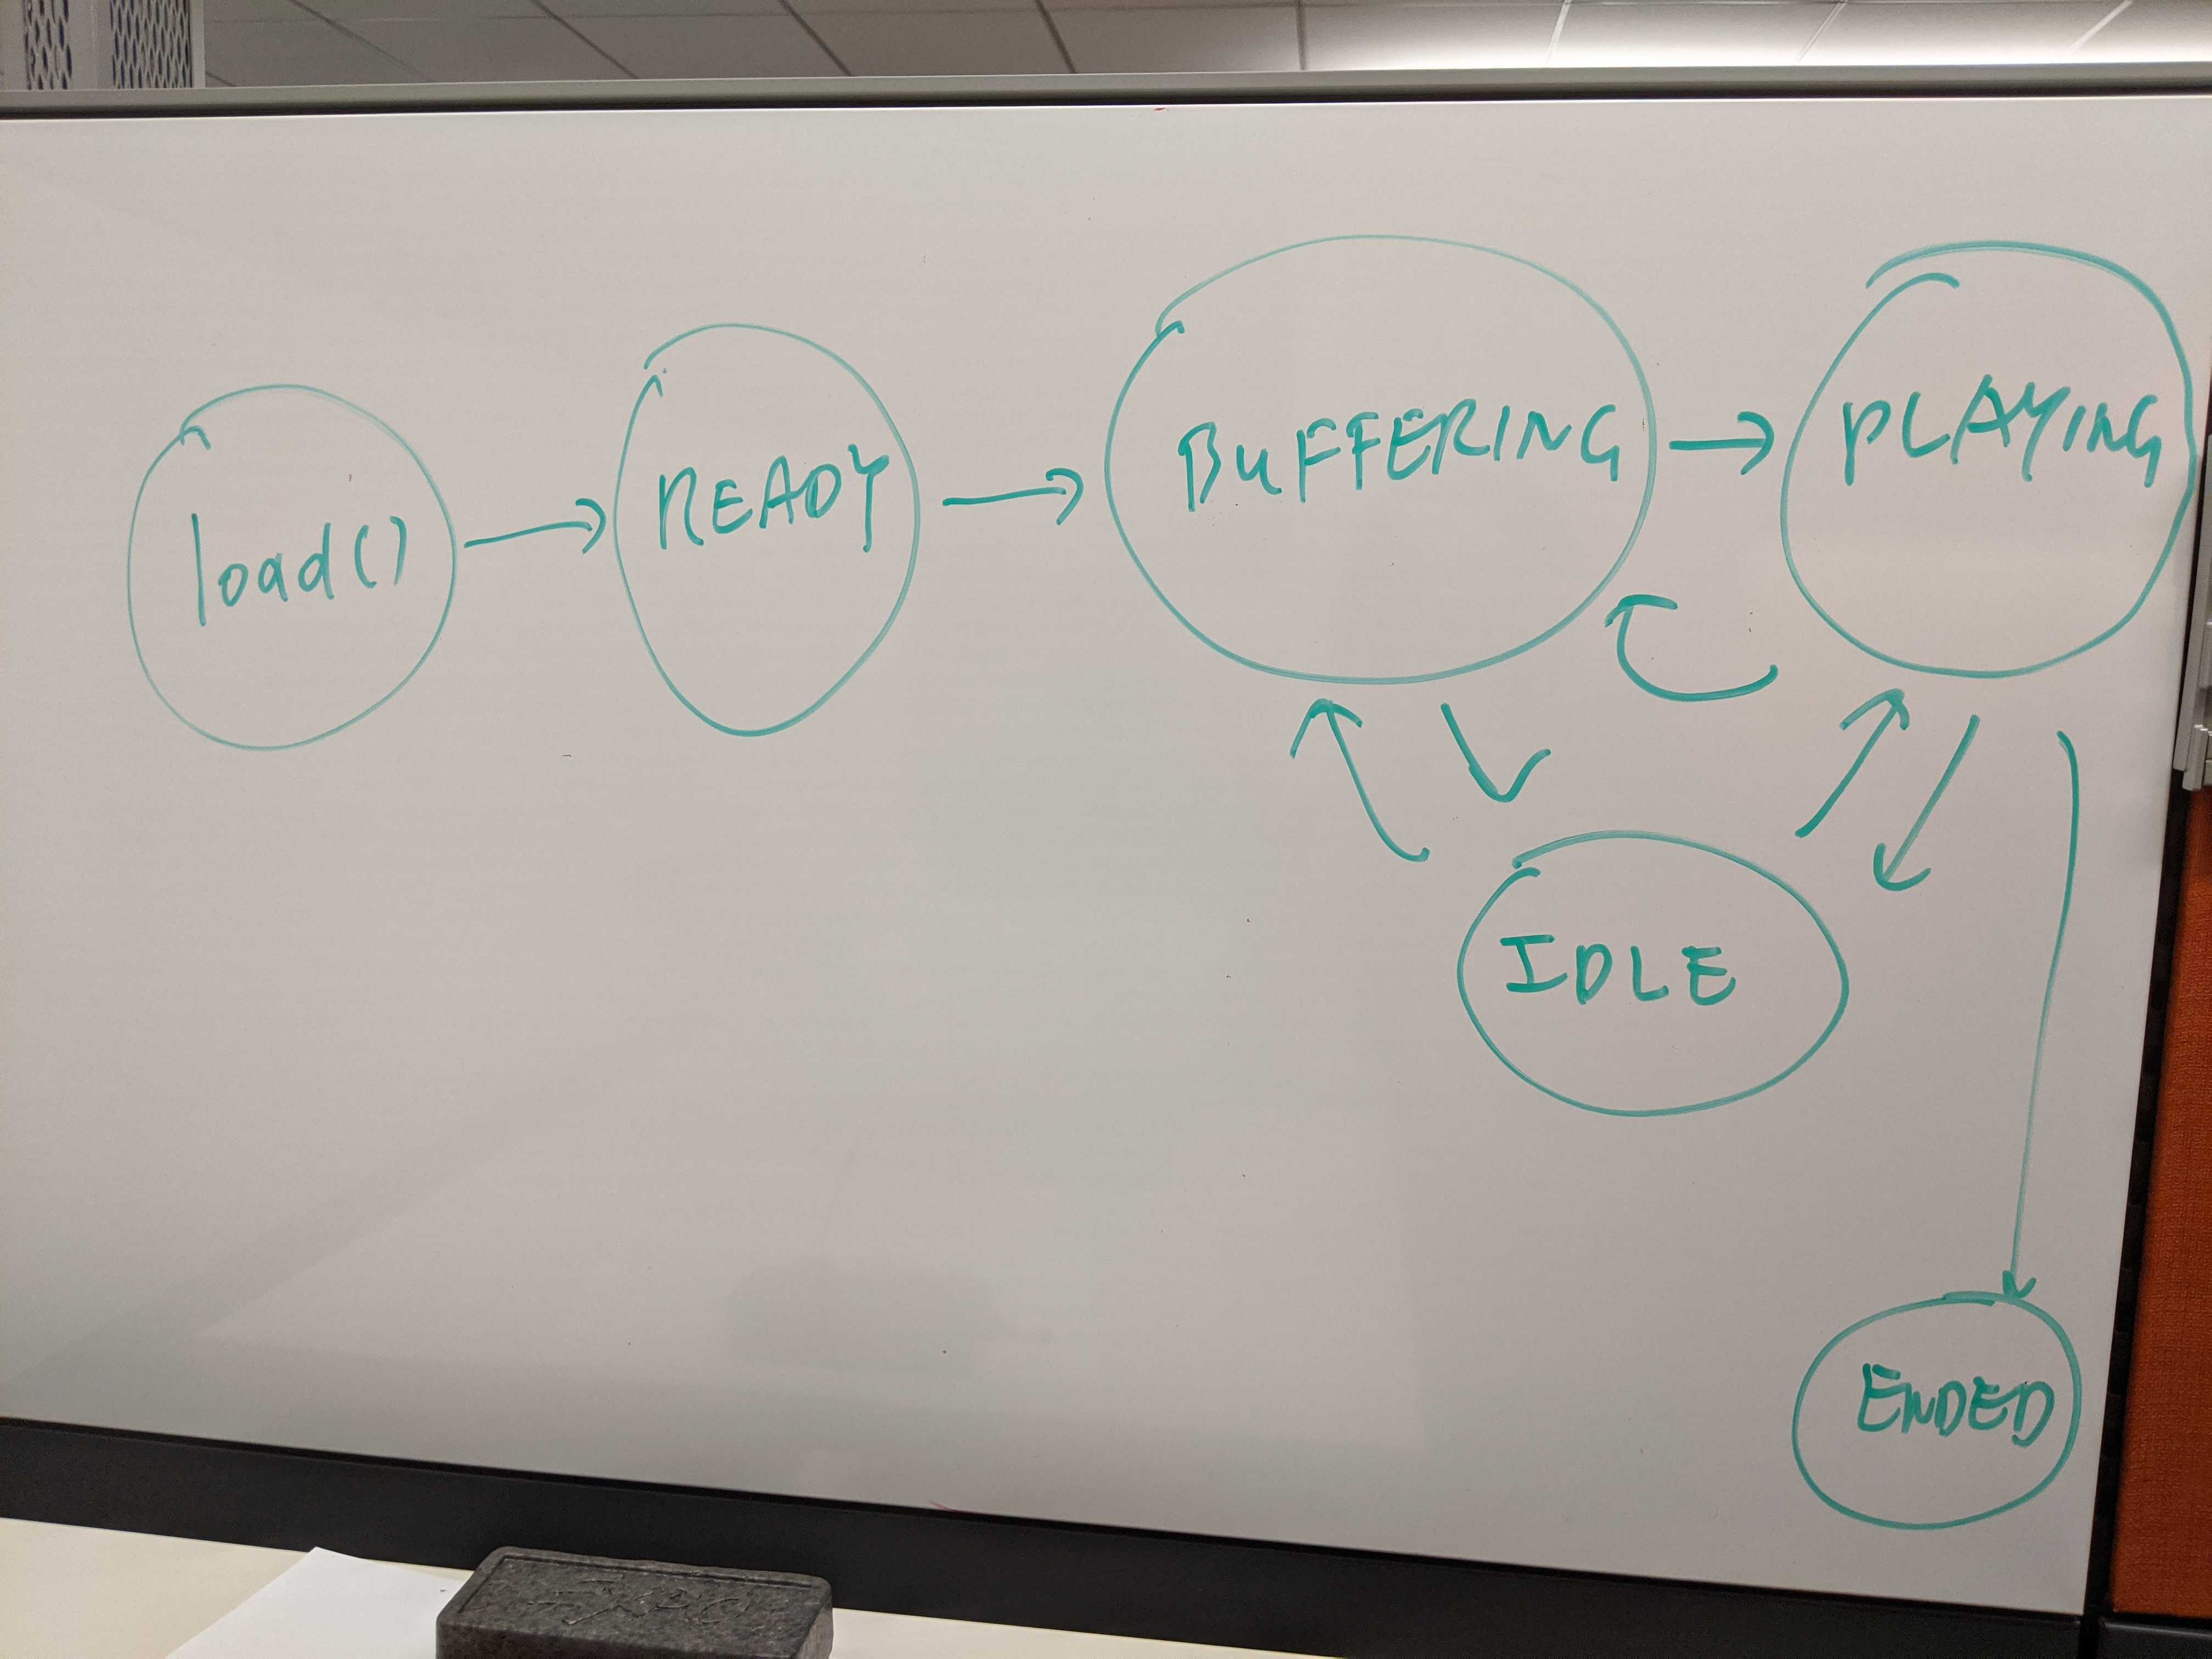 load()
READY
BUFFERING
PLAYING
IDLE
ENDED